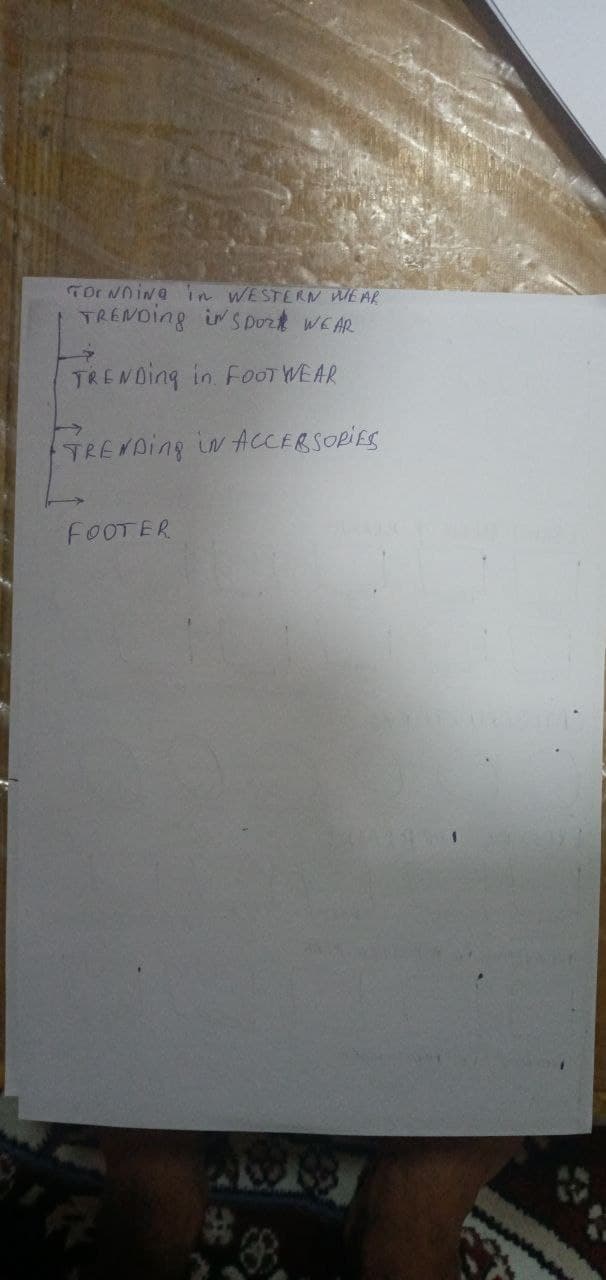 TRENDING in WESTERN WEAR
TRENDING in SPORT WEAR
TRENDING in FOOTWEAR
TRENDING iN ACCESSORIES
FOOTER